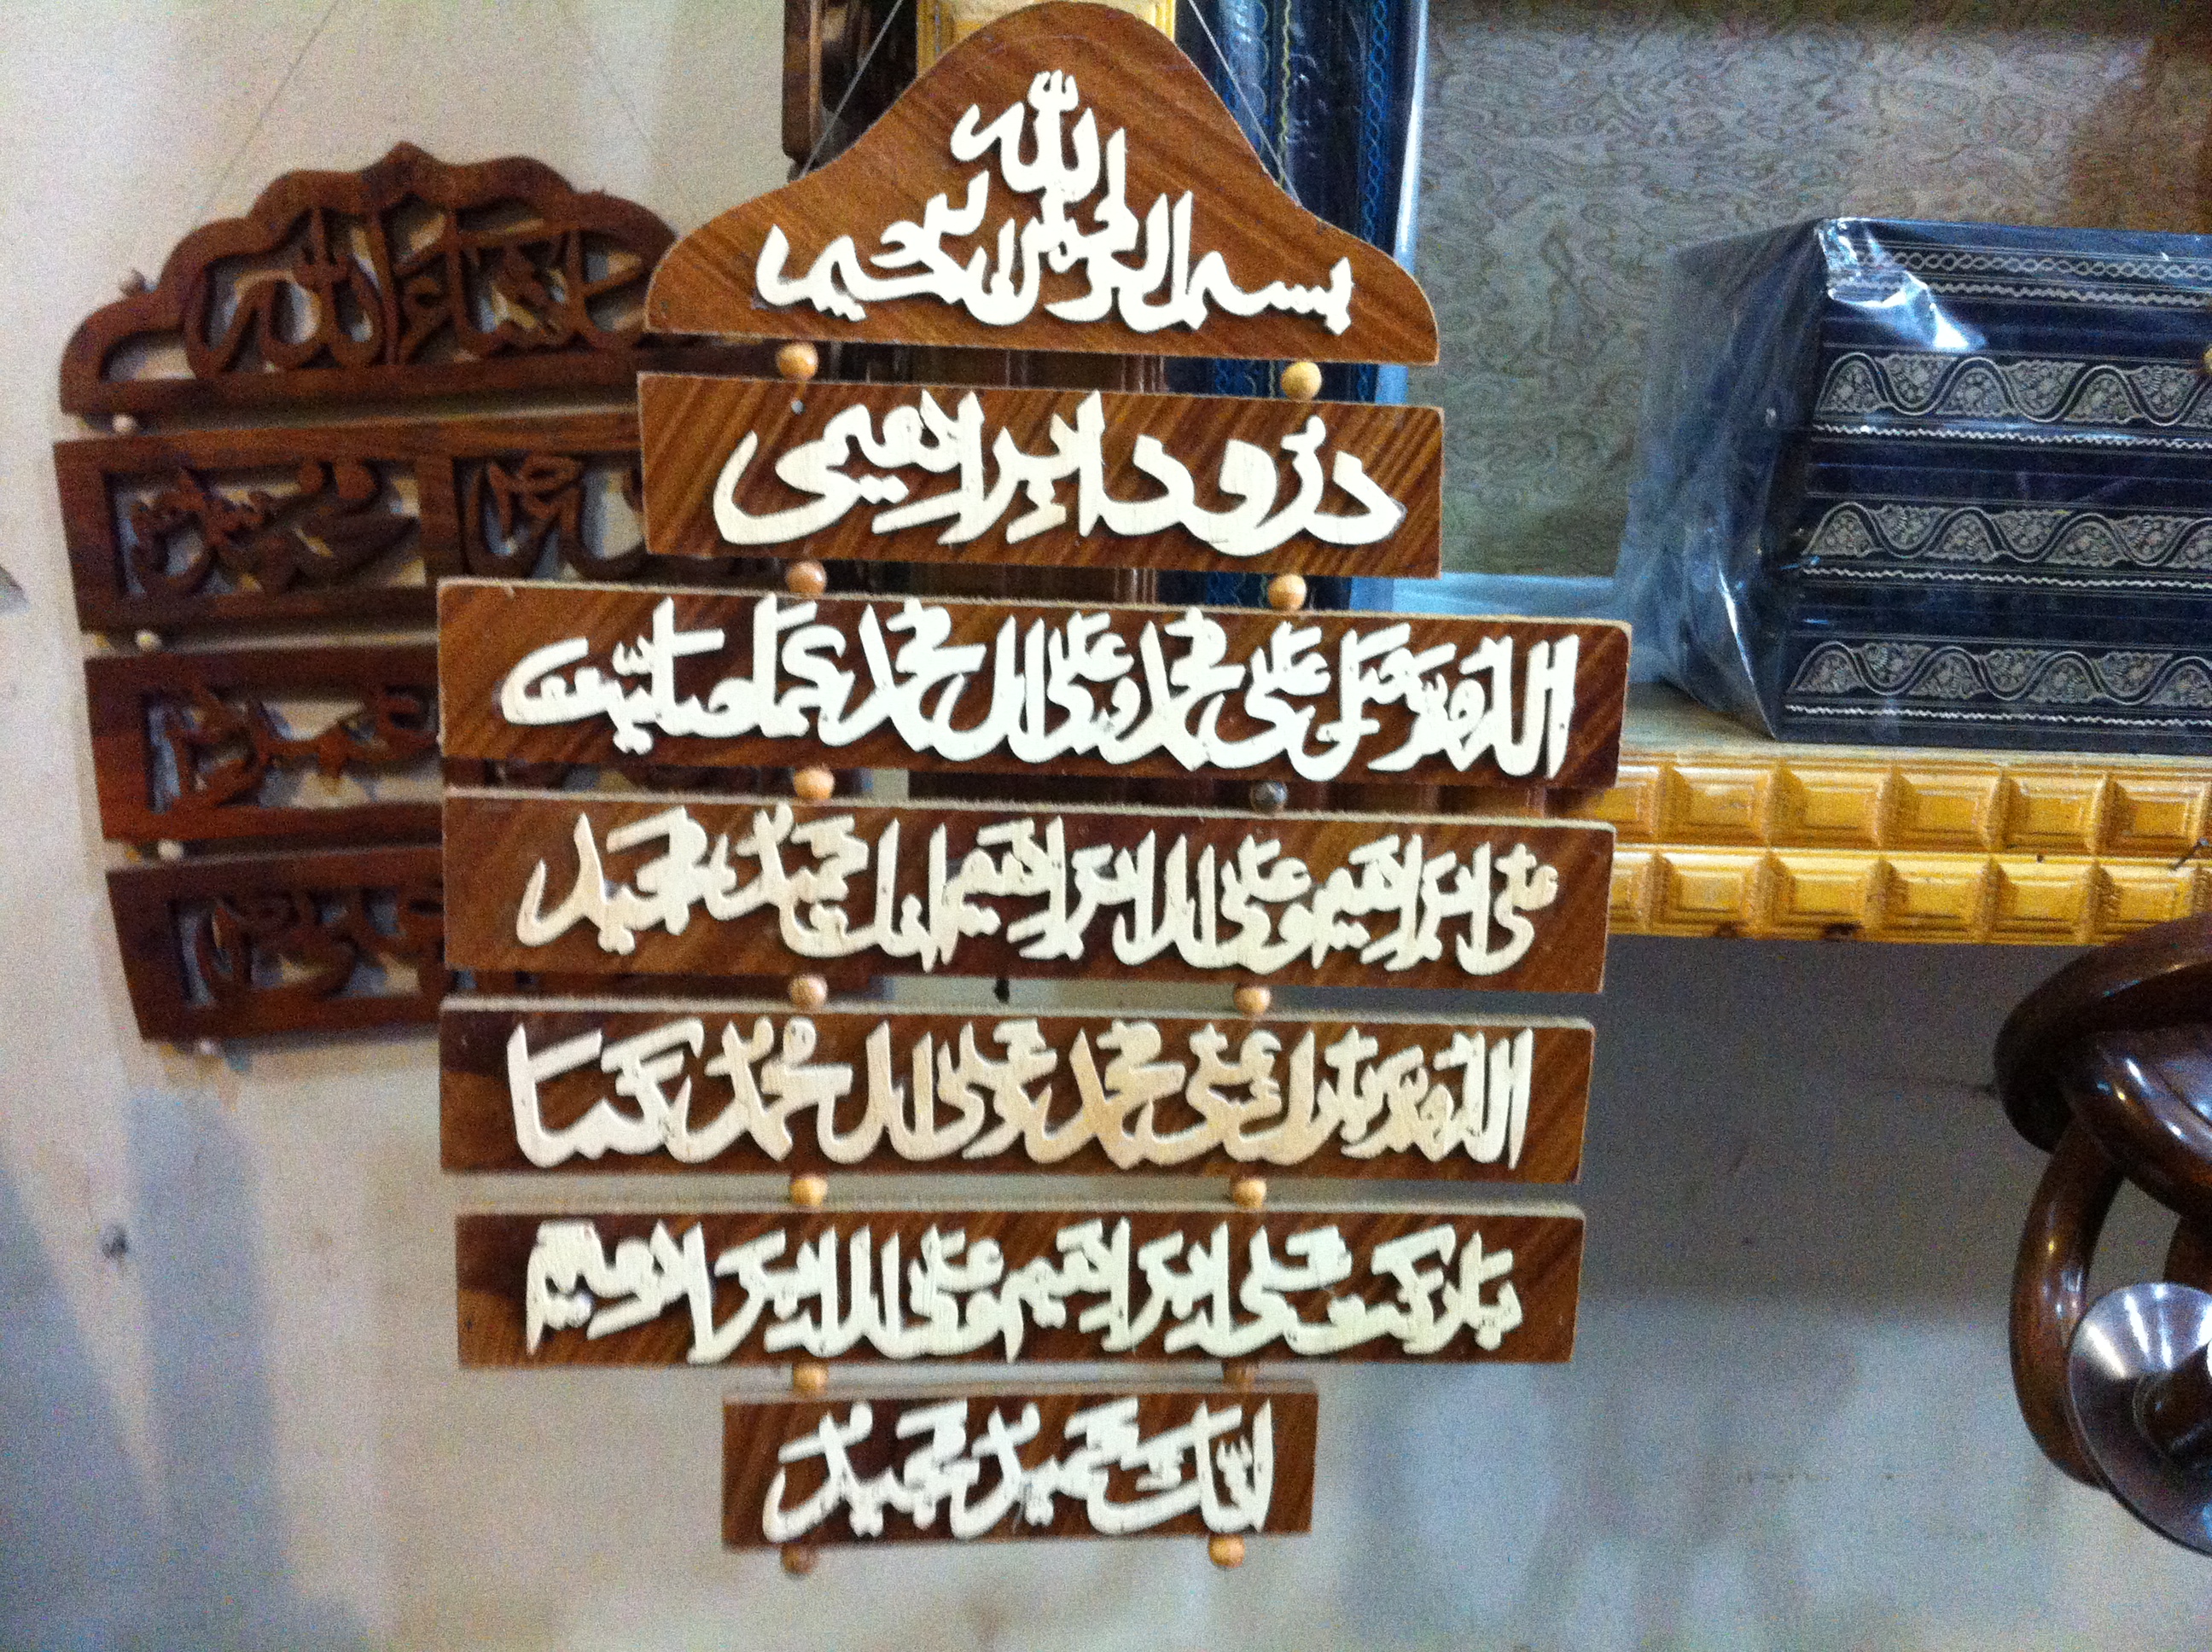 بسم الله الرحمن الرحيم
درُود ابراهیمی
اللهم صل على محمد وعلى ال محمد كما صليت
على ابراهيم وعلى ال ابراهيم انك حميد مجيد
اللهم بارك على محمد وعلى ال محمد كما
باركت على ابراهيم وعلى ال ابراهيم
انك حميد مجيد
ماشاءالله